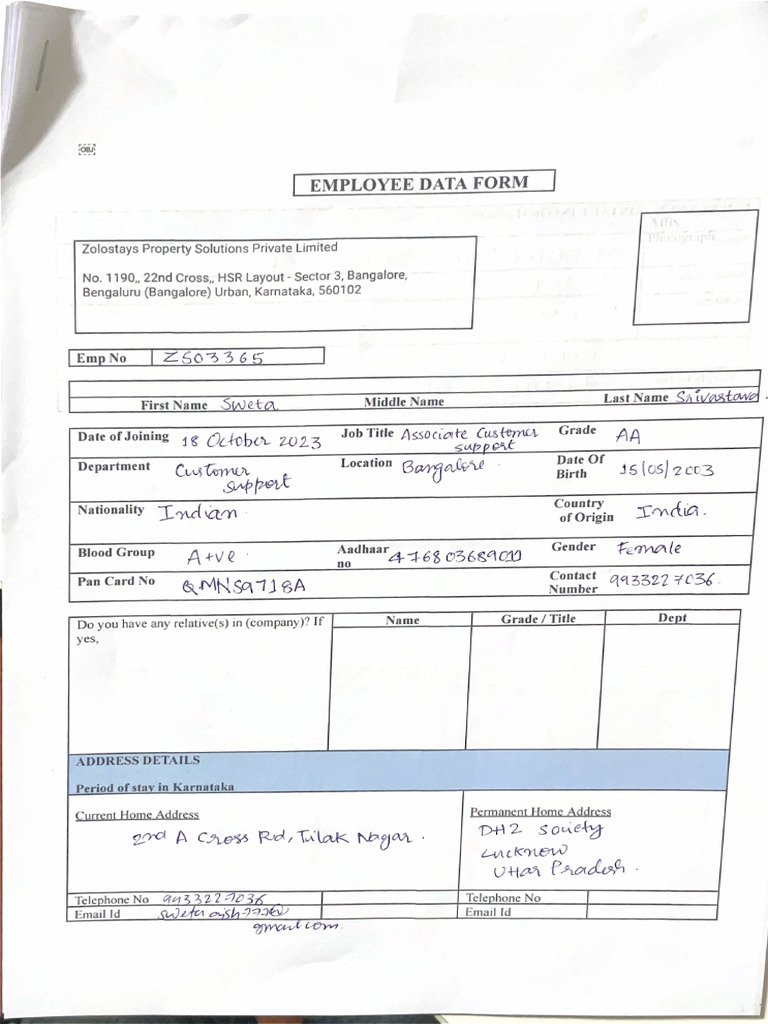 OBJ
EMPLOYEE DATA FORM
Affix
Photograph
Zolostays Property Solutions Private Limited
No. 1190,, 22nd Cross,, HSR Layout - Sector 3, Bangalore,
Bengaluru (Bangalore) Urban, Karnataka, 560102
Emp No ZS03365
First Name Sweta Middle Name Last Name Srivastava.
Date of Joining 18 October 2023 Job Title Associate Customer support Grade AA
Department Customer support Location Bangalore. Date Of Birth 15/05/2003
Nationality Indian Country of Origin India.
Blood Group A+ve. Aadhaar no 476803689011 Gender Female
Pan Card No QMNS9718A Contact Number 9933227036.
Do you have any relative(s) in (company)? If yes, Name Grade / Title Dept
ADDRESS DETAILS
Period of stay in Karnataka
Current Home Address Permanent Home Address
2nd A Cross Rd, Tilak Nagar. DH2 Society
Lucknow
Uttar Pradesh.
Telephone No 9933227036 Telephone No
Email Id Email Id
gmail.com.